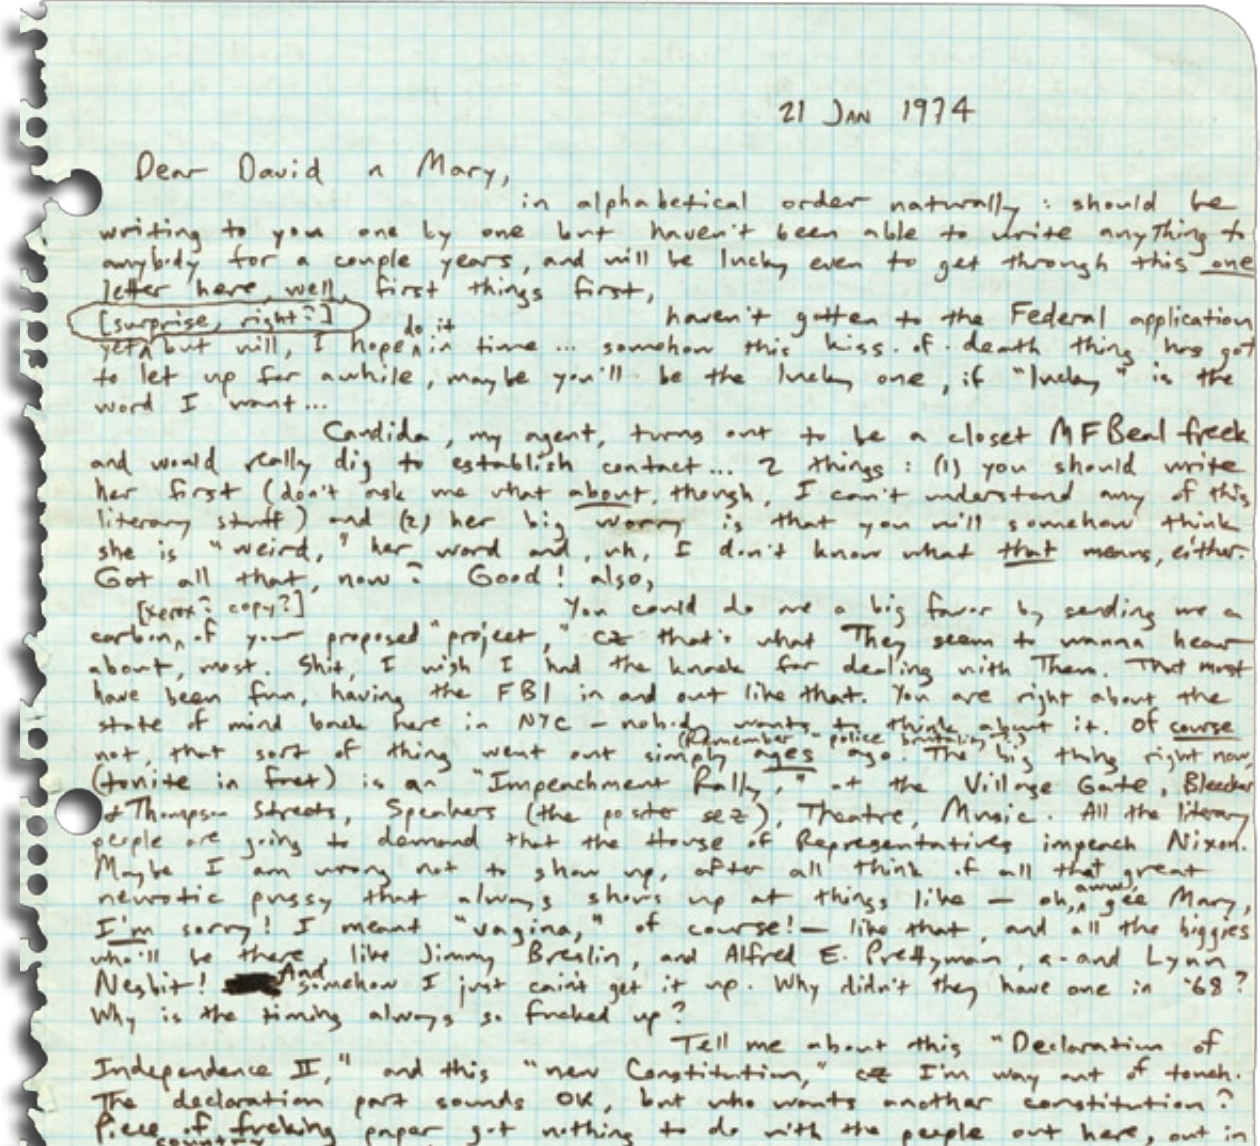 21 JAN 1974
Dear David n Mary,
in alphabetical order naturally: should be
writing to you one by one but haven't been able to write anything to
anybody for a couple years, and will be lucky even to get through this one
letter here, well, first things first,
[surprise, right?] haven't gotten to the Federal application
do it
yet, but will, I hope in time... somehow this kiss-of-death thing has got
to let up for awhile, maybe you'll be the lucky one, if "lucky" is the
word I want...
Candida, my agent, turns out to be a closet MFBeal freek
and would really dig to establish contact... 2 things: (1) you should write
her first (don't ask me what about, though, I can't understand any of this
literary stuff) and (2) her big worry is that you will somehow think
she is "weird," her word and, uh, I don't know what that means, either.
Got all that, now? Good! also,
[xerox? copy?] You could do me a big favor by sending me a
carbon, of your proposed "project," cz that's what They seem to wanna hear
about, most. Shit, I wish I had the knack for dealing with Them. That must
have been fun, having the FBI in and out like that. You are right about the
state of mind back here in NYC – nobody wants to think about it. Of course
(Remember "police brutality"?)
not, that sort of thing went out simply ages ago. The big thing right now,
(tonite in fact) is an "Impeachment Rally," at the Village Gate, Bleecker
at Thompson Streets, Speakers (the poster sez), Theatre, Music. All the literary
people are going to demand that the House of Representatives impeach Nixon.
Maybe I am wrong not to show up, after all think of all that great
neurotic pussy that always shows up at things like – oh, aww, gee Mary,
I'm sorry! I meant "vagina," of course! – like that, and all the biggies
who'll be there, like Jimmy Breslin, and Alfred E. Prettyman, a-and Lynn
Nesbit! And somehow I just cain't get it up. Why didn't they have one in '68?
Why is the timing always so fucked up?
Tell me about this "Declaration of
Independence II," and this "new Constitution," cz I'm way out of touch.
The declaration part sounds OK, but who wants another constitution?
Piece of fucking paper got nothing to do with the people out here, out in
country